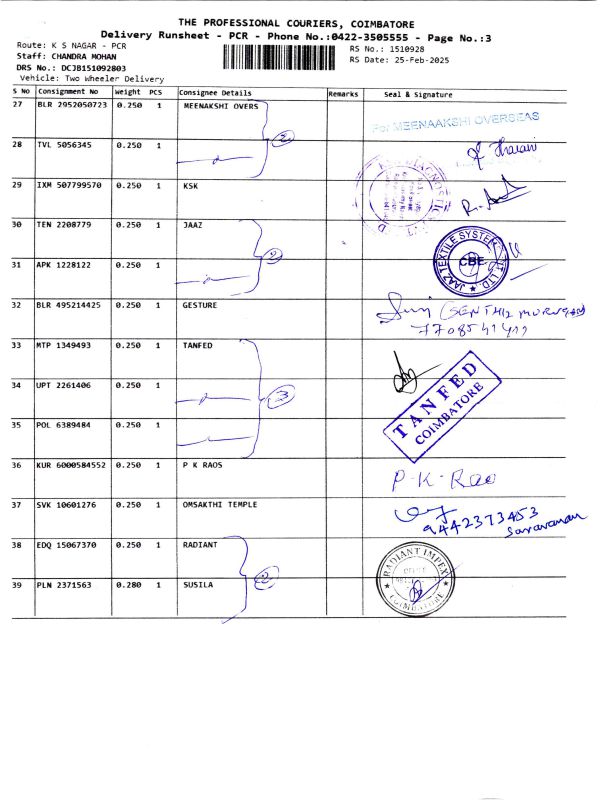 THE PROFESSIONAL COURIERS, COIMBATORE
Delivery Runsheet - PCR - Phone No.:0422-3505555 - Page No.:3
Route: K S NAGAR - PCR
RS No.: 1510928
Staff: CHANDRA MOHAN
RS Date: 25-Feb-2025
DRS No.: DCJB151092803
Vehicle: Two Wheeler Delivery
S No Consignment No Weight PCS Consignee Details Remarks Seal & Signature
27 BLR 2952050723 0.250 1 MEENAKSHI OVERS
For MEENAAKSHI OVERSEAS
2
28 TVL 5056345 0.250 1
29 IXM 507799570 0.250 1 KSK
30 TEN 2208779 0.250 1 JAAZ
JAAZ TEXTILE SYSTEM
LTD.
CBE
2
31 APK 1228122 0.250 1
32 BLR 495214425 0.250 1 GESTURE
33 MTP 1349493 0.250 1 TANFED
34 UPT 2261406 0.250 1
3
TANFED
COIMBATORE
35 POL 6389484 0.250 1
36 KUR 6000584552 0.250 1 P K RAOS
P-K-Rao
37 SVK 10601276 0.250 1 OMSAKTHI TEMPLE
9442373453
Saravanan
38 EDQ 15067370 0.250 1 RADIANT
RADIANT IMPEX
COIMBATORE
2
39 PLN 2371563 0.280 1 SUSILA